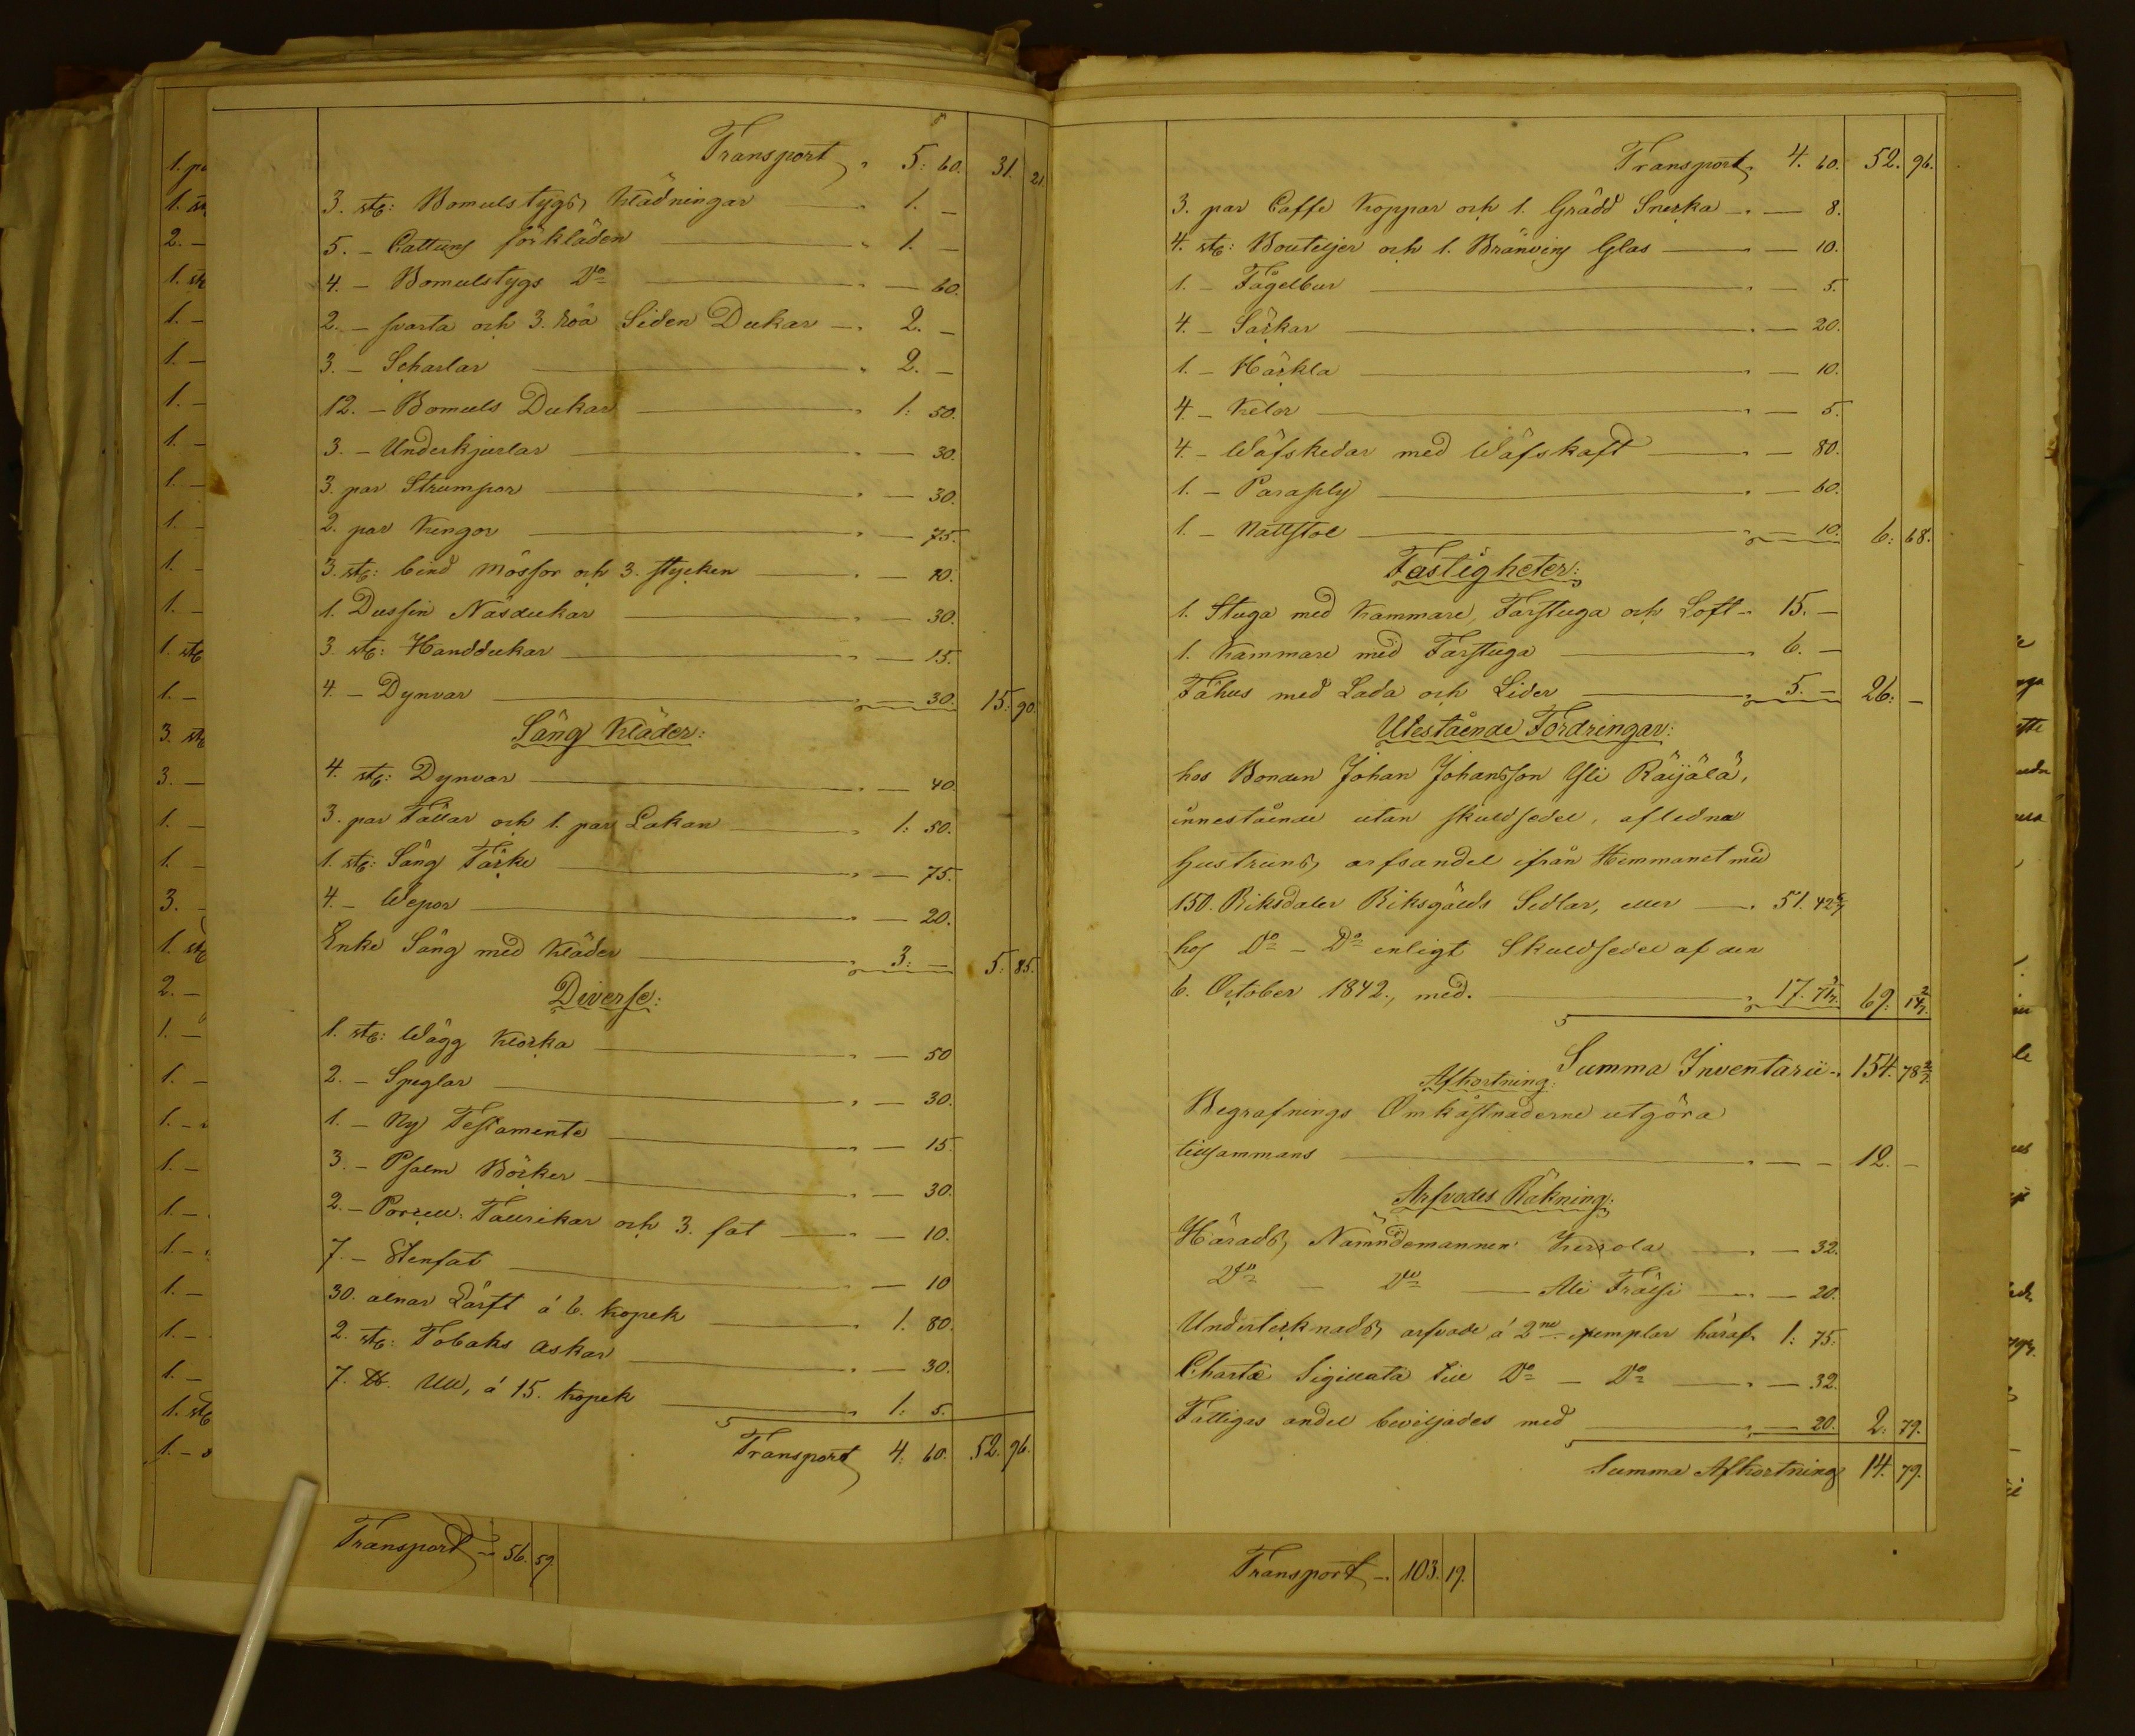 Transport 5: 60. 31. 21.
3. stÿ: Bomulstygs Klädningar 1. —
5. — Cattuns förkläden 1. —
4. — Bomulstygs Do — 60.
2. — svarta och 3. röa Siden Dukar — 2. —
3. — Scharlar 2. —
12. — Bomuls Dukar 1: 50.
3. — Underkjorlar — 30.
3. par Strumpor — 30.
2. par Kengor — 75.
3. stÿ: bind Mössor och 3. stycken —
1. Dussin Näsdukar — 30.
3. stÿ: Handdukar — 15.
4. — Dynvar — 30. 15: 90.
Säng Kläder:
4. stÿ: Dynvar — 40.
3. par Fällar och 1. par Lakan 1: 50.
1. stÿ: Säng Täcke — 75.
4. — Wepor — 20.
Enke Säng med Kläder 3: — 5: 85.
Diverse:
1. stÿ: Wägg Klocka — 50
2. — Speglar — 30.
1. — Ny Testamente — 15.
3. — Psalm Böcker — 30.
2. — Porcell. Taurikar och 3. fat — 10.
7. — Stenfat — 10
30. alnar Lärft á 6. kopek 1. 80.
2. stÿ: Tobaks askar — 30.
7. ℔. Ull, á 15. kopek 1: 5.
Transport 4: 60. 52. 96.
Transport 56. 59.
Transport 4. 60. 52. 96.
3. par Caffe Koppar och 1. Grädd Snecka — 8.
4. stÿ: Bouteljer och 1. Bränvins Glas — 10.
1. — Fågelbur — 5.
4. — Säckar — 20.
1. — Häckla — 10.
4. — Kelor — 5.
4. — Wäfskedar med Wäfskaft — 80.
1. — Paraply — 60.
1. — Nattstol — 10. 6: 68.
Fastigheter:
1. Stuga med Kammare, Farstuga och Loft 15. —
1. Kammare med Farstuga 6. —
Fähus med Lada och Lider 5. — 26: —
Utestående Fordringar:
hos Bonden Johan Johansson Yli Räijälä,
innestående utan skuldsedel, aflidna
hustruns arfsandel ifrån Hemmanet med
150. Riksdaler Riksgälds Sedlar, eller 51. 42 6/7
hos Do — Do enligt Skuldsedel af den
6. October 1842., med. 17. 71 3/7. 69: 14 2/7.
Summa Inventarii 154. 78 2/7.
Afkortning:
Begrafnings Omkåstnaderne utgöra
tillsammans — — 12. —
Arfvodes Räkning:
Härads Nämndemannen Kerrola — 32.
Do — Do — Alli Frälsi — 20.
Undertecknads arfvode á 2ne exemplar häraf 1: 75.
Charta Sigillata till Do — Do — 32.
Fattigas andel beviljades med — 20. 2: 79.
Summa Afkortning 14. 79.
Transport 103. 19.